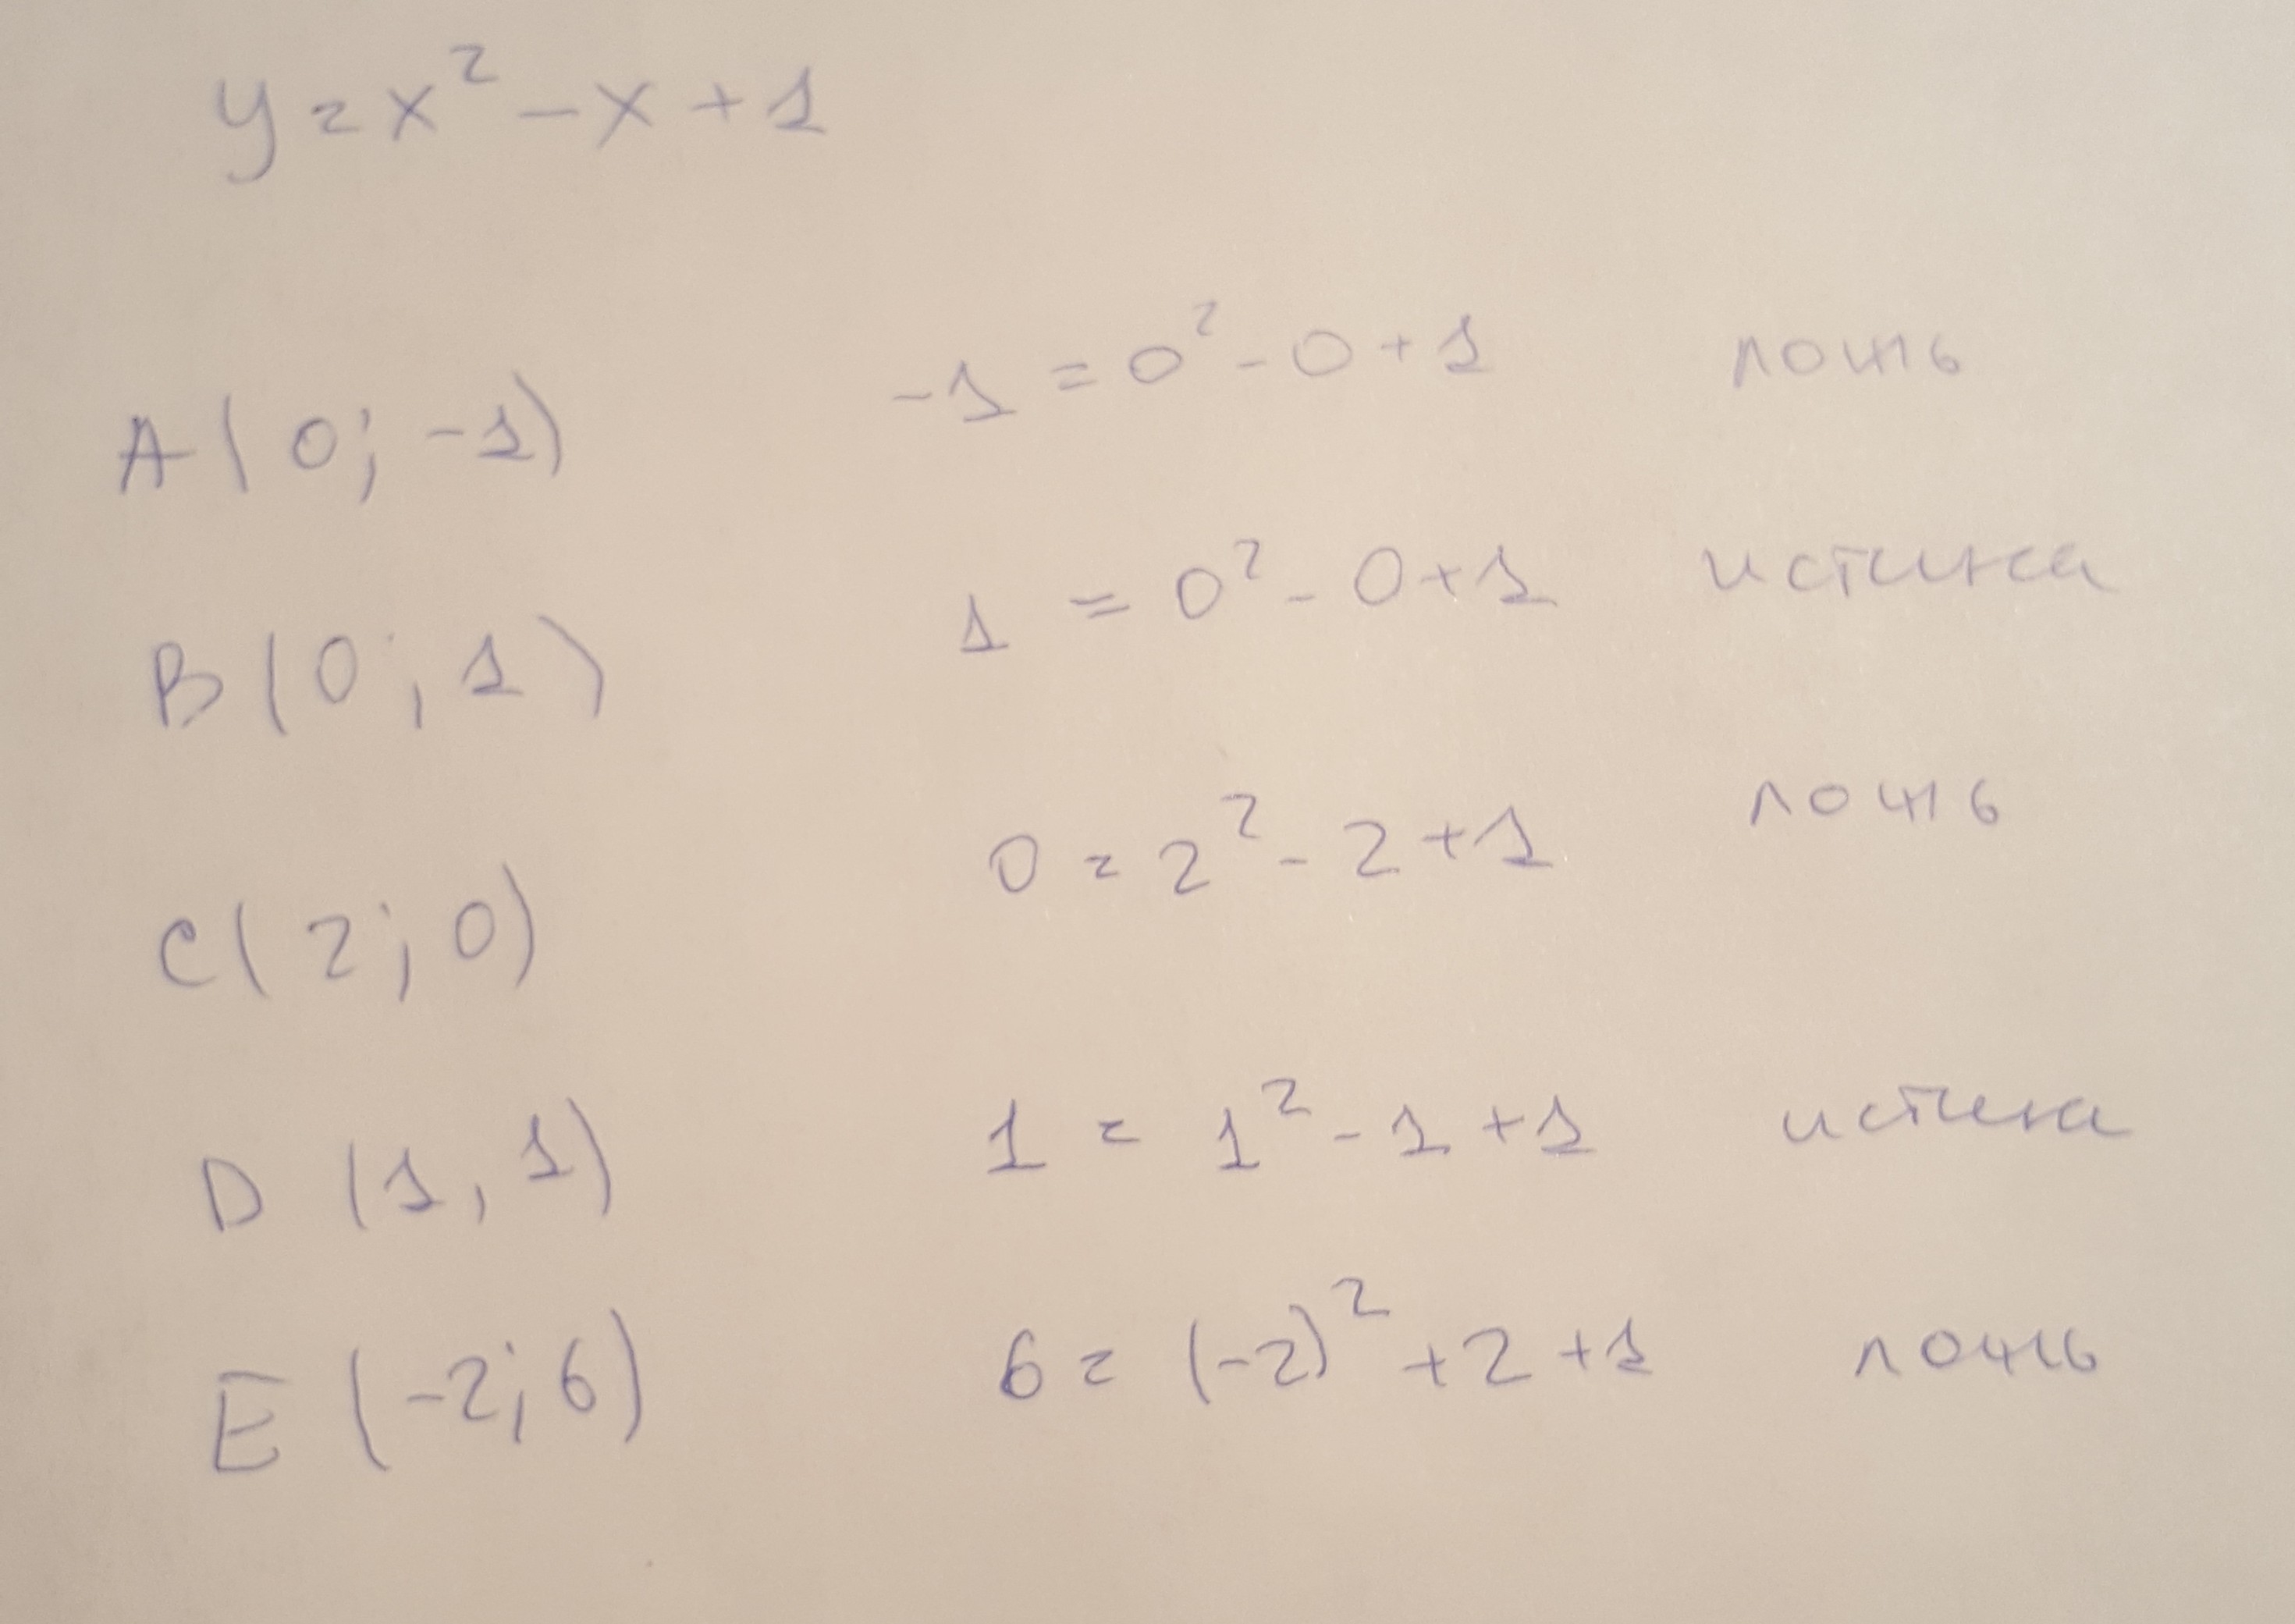 y = x² - x + 1
A(0; -1) -1 = 0² - 0 + 1 ложь
B(0; 1) 1 = 0² - 0 + 1 истина
C(2; 0) 0 = 2² - 2 + 1 ложь
D (1, 1) 1 = 1² - 1 + 1 истина
E (-2; 6) 6 = (-2)² + 2 + 1 ложь